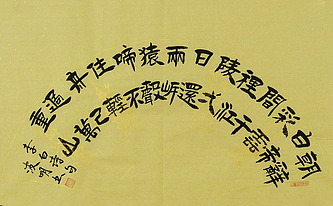 朝辭
白帝
彩雲
間千
裡江
陵一
日還
兩岸
猿聲
啼不
住輕
舟已
過萬
重山
李白詩